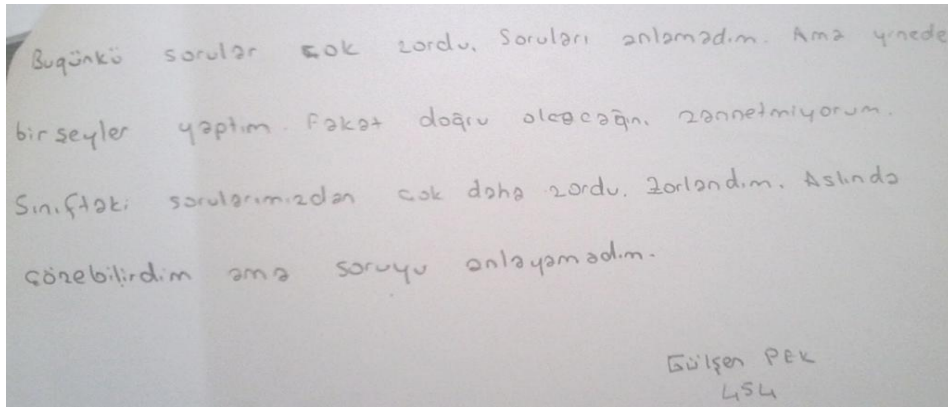 Bugünkü sorular çok zordu. Soruları anlamadım. Ama yinede
birşeyler yaptım. Fakat doğru olacağını zannetmiyorum.
Sınıftaki sorularımızdan çok daha zordu. Zorlandım. Aslında
çözebilirdim ama soruyu anlayamadım.
Gülşen PEK
454